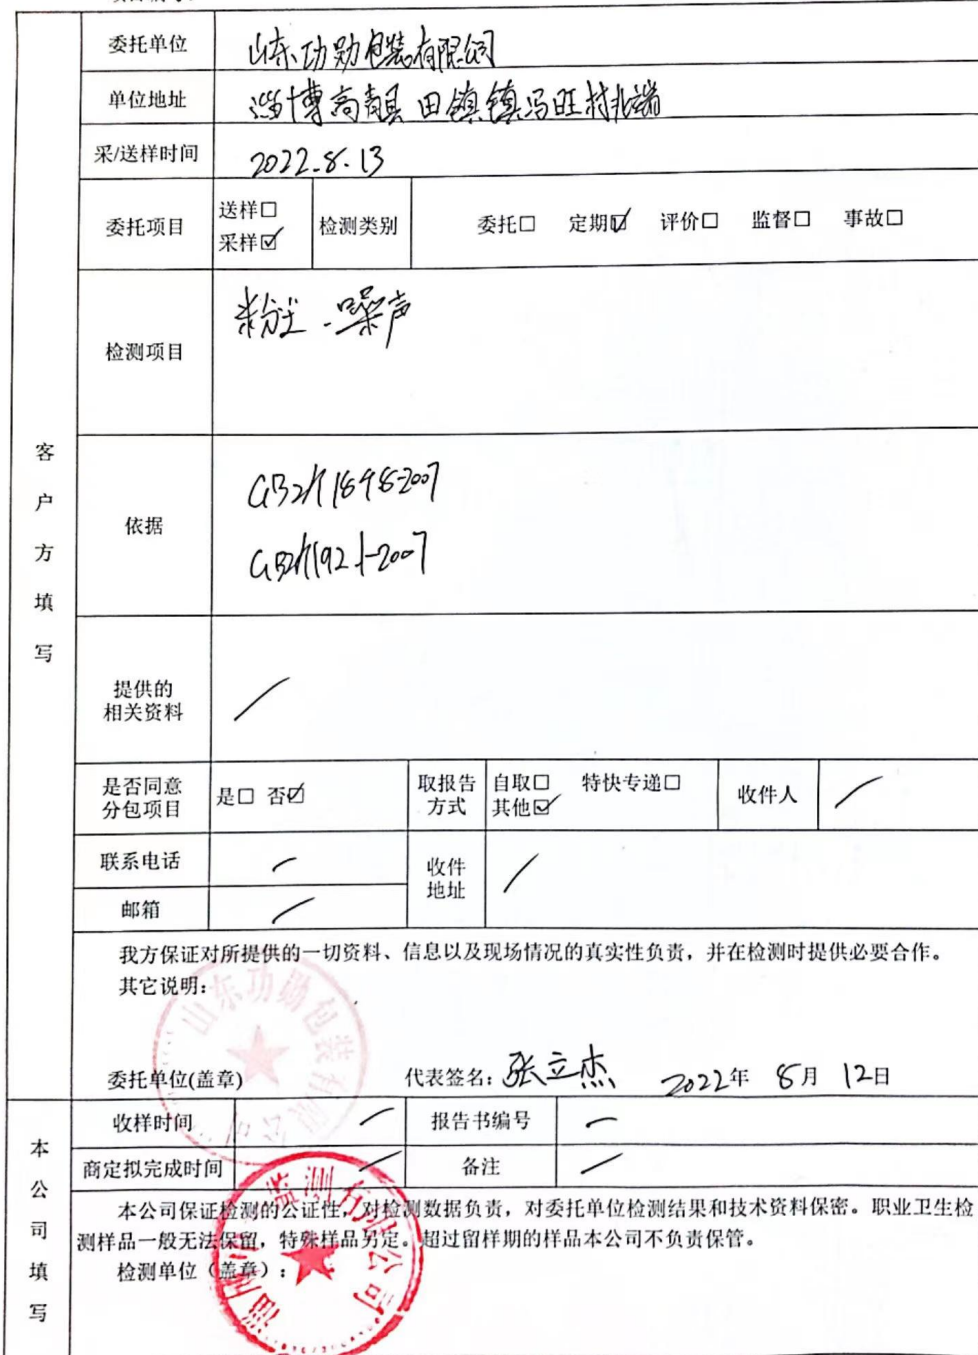 委托单位 山东功勋包装有限公司
单位地址 淄博高青县田镇镇冯旺村北端
采/送样时间 2022.8.13
委托项目 送样☐ 采样☑ 检测类别 委托☐ 定期☑ 评价☐ 监督☐ 事故☐
检测项目 粉尘、噪声
客户方填写
依据
GBZ/T1898-2007
GBZ/T1921-2007
提供的
相关资料 /
是否同意
分包项目 是☐ 否☑
取报告
方式 自取☐ 特快专递☐
其他☑
收件人 /
联系电话 /
收件
地址 /
邮箱 /
我方保证对所提供的一切资料、信息以及现场情况的真实性负责，并在检测时提供必要合作。
其它说明：
山东功勋包装有限公司
委托单位(盖章) 代表签名：张立杰 2022年 8月 12日
本公司填写
收样时间 / 报告书编号 /
商定拟完成时间 / 备注 /
本公司保证检测的公证性，对检测数据负责，对委托单位检测结果和技术资料保密。职业卫生检
测样品一般无法保留，特殊样品另定。超过留样期的样品本公司不负责保管。
检测单位（盖章）：
监测有限公司